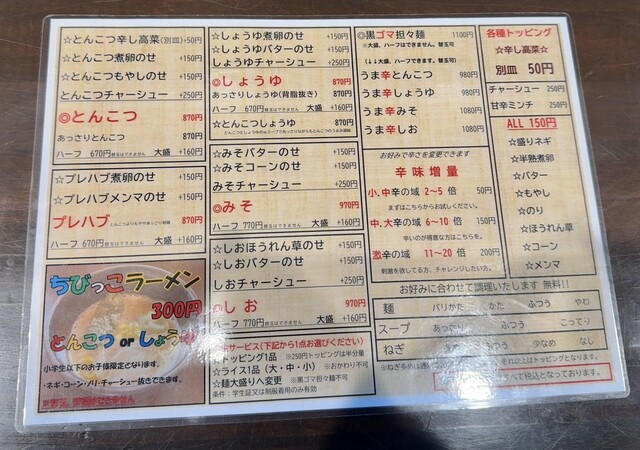 ☆とんこつ辛し高菜(別皿)+50円
☆とんこつ煮卵のせ +150円
☆とんこつもやしのせ +150円
とんこつチャーシュー +250円
◎とんこつ 870円
あっさりとんこつ 870円
ハーフ 670円 替玉はできません 大盛 +160円
☆プレハブ煮卵のせ +150円
☆プレハブメンマのせ +150円
プレハブ 870円
ハーフ 670円 替玉はできません 大盛 +160円
ちびっこラーメン
300円
とんこつ or しょうゆ
小学生以下のお子様限定となります。
・ネギ・コーン・ノリ・チャーシュー抜きできます。
☆しょうゆ煮卵のせ +150円
☆しょうゆバターのせ +150円
しょうゆチャーシュー +250円
◎しょうゆ 870円
あっさりしょうゆ(背脂抜き) 870円
ハーフ 670円 替玉はできません 大盛 +160円
☆とんこつしょうゆ 870円
☆みそバターのせ +150円
☆みそコーンのせ +150円
みそチャーシュー +250円
◎みそ 970円
ハーフ 770円 替玉はできません 大盛 +160円
☆しおほうれん草のせ +150円
☆しおバターのせ +150円
しおチャーシュー +250円
しお 970円
ハーフ 770円 替玉はできません 大盛 +160円
サービス(下記から1点お選びください)
☆トッピング1品 ※250円トッピングは半分量
☆ライス1品(大・中・小) ※おかわり不可
☆麺大盛りへ変更 ※黒ゴマ担々麺不可
条件:学生証又は制服着用のみ有効
◎黒ゴマ担々麺 1100円
※大盛、ハーフはできません。替玉可
(↓↓大盛、ハーフできません。替玉可)
うま辛とんこつ 980円
うま辛しょうゆ 980円
うま辛みそ 1080円
うま辛しお 1080円
お好みで辛さを変更できます
辛味増量
小.中辛の域 2~5 倍 50円
まずはこちらからお試しください。
中.大辛の域 6~10 倍 150円
辛いのが得意な方はこちらを。
激辛の域 11~20 倍 200円
刺激を欲してる方、チャレンジしたい方。
各種トッピング
☆辛し高菜☆
別皿 50円
チャーシュー 250円
甘辛ミンチ 250円
ALL 150円
☆盛りネギ
☆半熟煮卵
☆バター
☆もやし
☆のり
☆ほうれん草
☆コーン
☆メンマ
お好みに合わせて調理いたします 無料!!
麺 バリかた かた ふつう やわ
スープ あっさり ふつう こってり
ねぎ ふつう 少なめ なし
それ以上はトッピングとなります。
すべて税込となっております。